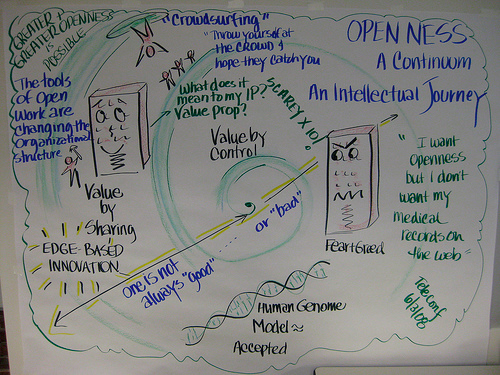 GREATER +
GREATER OPENNESS
IS
POSSIBLE
"Crowdsurfing"
"Throw yourself at
the CROWD &
hope they catch you
OPENNESS
A Continuum
An Intellectual Journey
The tools
of Open
Work are
changing the
Organizational
structure
What does it
mean to my IP?
Value prop?
SCAREY X 10!
Value by
Control
Value
by
Sharing
EDGE-BASED
INNOVATION
one is not
always "good"
..... or "bad"
Fear+Greed
"I want
openness
but I don't
want my
medical
records on
the web"
Human Genome
Model ≈
Accepted
Teleconf
6/3/08